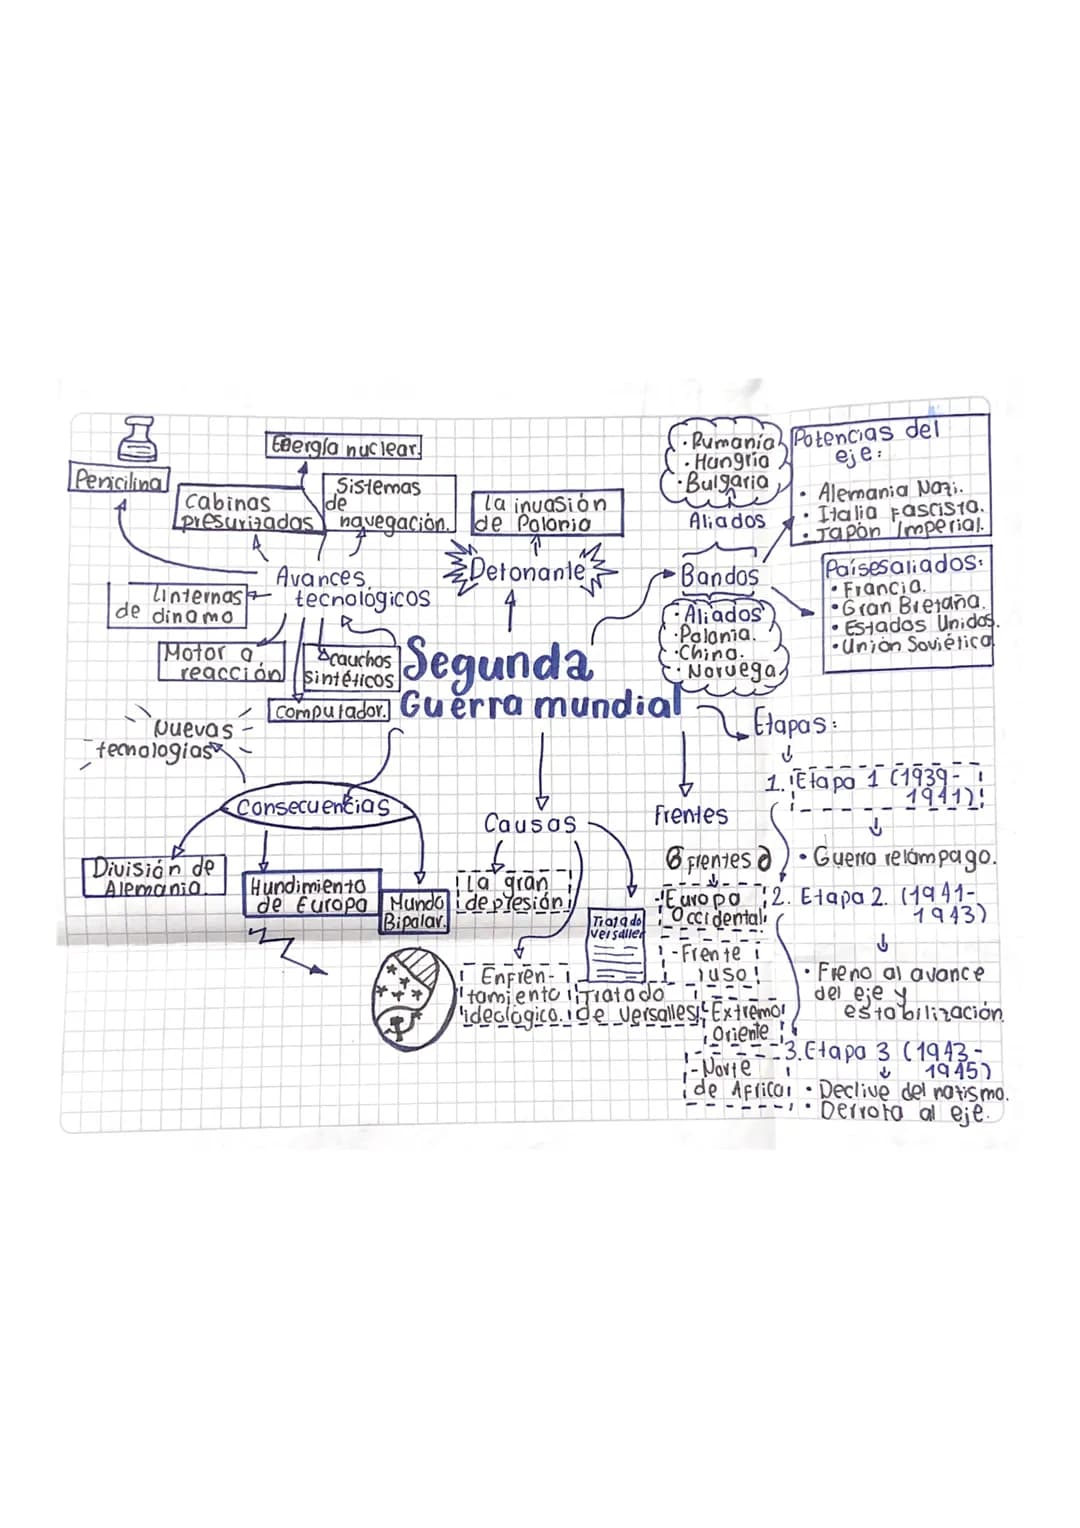 Energía nuclear.
Penicilina
Cabinas
presurizadas
Sistemas
de
navegación.
Avances
tecnológicos
Linternas
de dinamo
Motor a
reacción
cauchos
sintéticos
Computador.
La invasión
de Polonia
Detonante
Segunda
Guerra mundial
· Rumanía
· Hungría
· Bulgaria
Aliados
Bandos
· Aliados
· Polonia.
· China.
· Noruega
Potencias del
eje:
· Alemania Nazi.
· Italia Fascista.
· Japón Imperial.
Países aliados:
· Francia.
· Gran Bretaña.
· Estados Unidos.
· Unión Soviética
Nuevas
tecnologías
Consecuencias
División de
Alemania.
Hundimiento
de Europa
Mundo
Bipolar.
Causas
La gran
depresión
Enfren-
tamiento
ideológico.
Tratado
versalles
Tratado
de Versalles
Frentes
6 frentes
-Europa
Occidental.
-Frente
ruso
-Extremo
Oriente
-Norte
de África
Etapas:
1. Etapa 1 (1939-
1941)
· Guerra relámpago.
2. Etapa 2. (1941-
1943)
· Freno al avance
del eje y
estabilización.
3. Etapa 3 (1943-
1945)
· Declive del natismo.
· Derrota al eje.